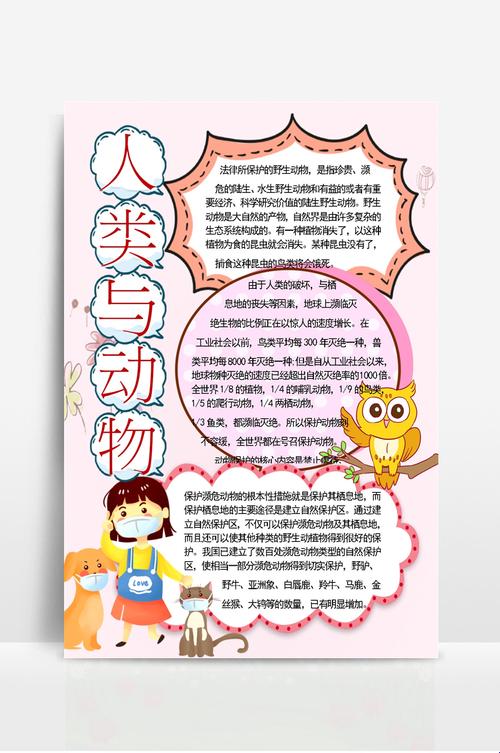 人类与动物
法律所保护的野生动物，是指珍贵、濒
危的陆生、水生野生动物和有益的或者有重
要经济、科学研究价值的陆生野生动物。野生
动物是大自然的产物，自然界是由许多复杂的
生态系统构成的。有一种植物消失了，以这种
植物为食的昆虫就会消失。某种昆虫没有了，
捕食这种昆虫的鸟类将会饿死。
由于人类的破坏，与栖
息地的丧失等因素，地球上濒临灭
绝生物的比例正在以惊人的速度增长。在
工业社会以前，鸟类平均每 300 年灭绝一种，兽
类平均每 8000 年灭绝一种:但是自从工业社会以来，
地球物种灭绝的速度已经超出自然灭绝率的1000 倍。
全世界 1/8 的植物，1/4 的哺乳动物，1/9 的鸟类，
1/5 的爬行动物，1/4 两栖动物，
1/3 鱼类，都濒临灭绝。所以保护动物刻
不容缓，全世界都在号召保护动物。
动物保护的核心内容是禁止虐待
保护濒危动物的根本性措施就是保护其栖息地，而
保护栖息地的主要途径是建立自然保护区。通过建
立自然保护区，不仅可以保护濒危动物及其栖息地，
而且还可以使其他种类的野生动植物得到很好的保
护。我国已建立了数百处濒危动物类型的自然保护
区，使相当一部分濒危动物得到切实保护，野驴、
野牛、亚洲象、白唇鹿、羚牛、马鹿、金
丝猴、大鸨等的数量，已有明显增加。
LOVE